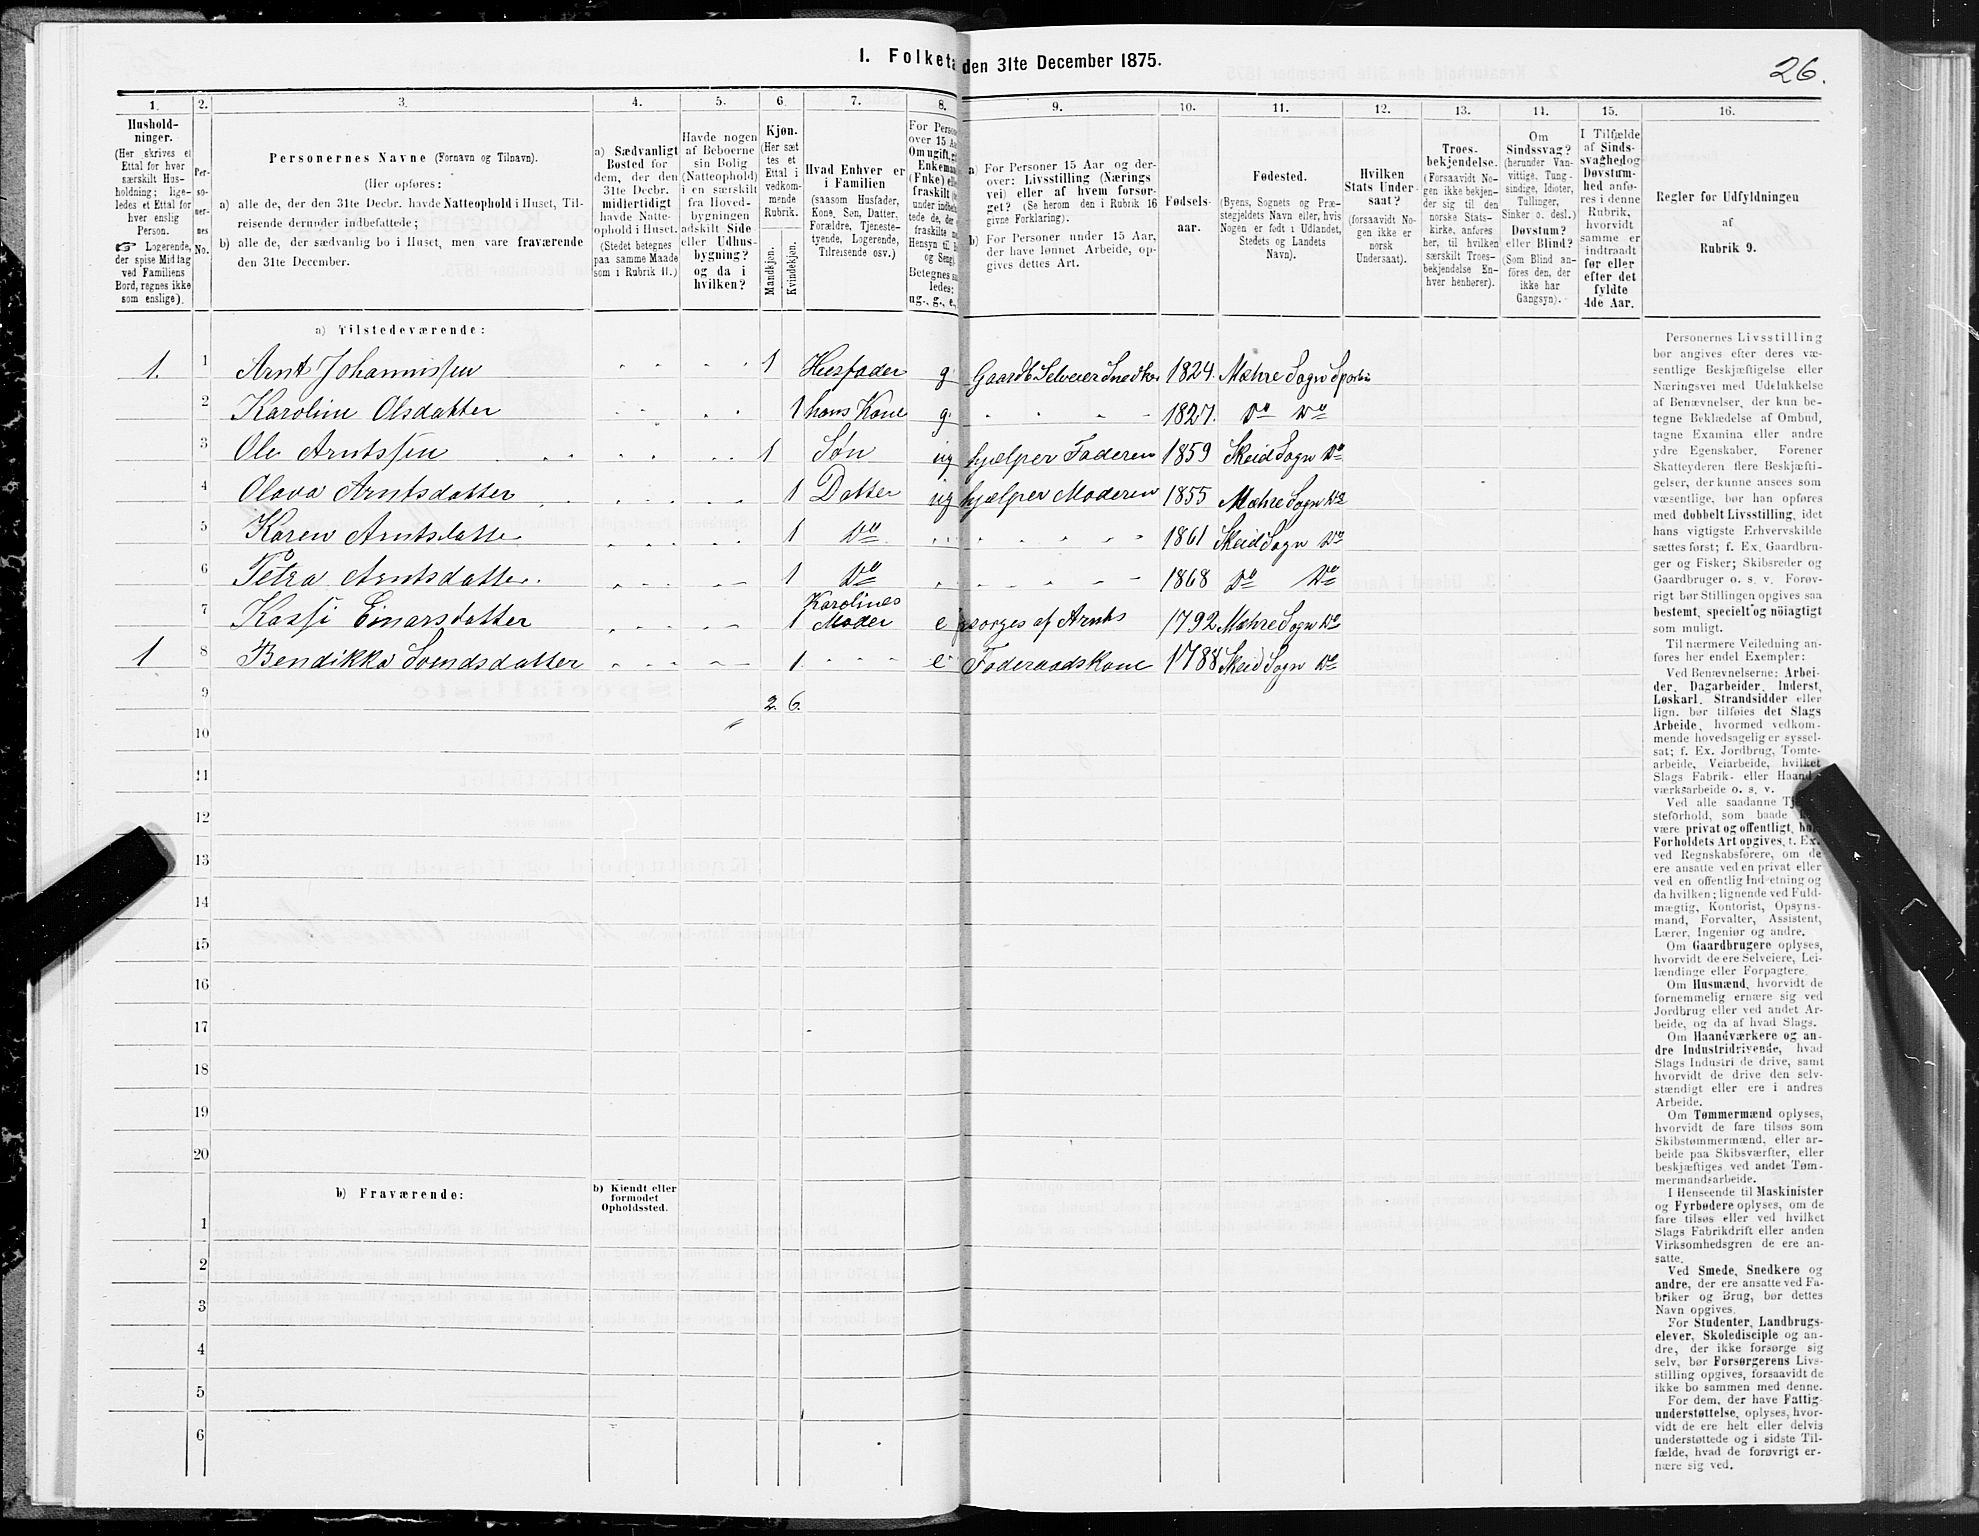 1. Folketæ
den 31te December 1875.
26.
1. 2. 3. 4. 5. 6. 7. 8. 9. 10. 11. 12. 13. 14. 15. 16.
Hushold-
ninger.
(Her skrives et
Ettal for hver
særskilt Hus-
holdning; lige-
ledes et Ettal for
hver enslig
Person.
☞ Logerende,
der spise Middag
ved Familiens
Bord, regnes ikke
som enslige).
Per-
so-
ner-
nes
No.
Personernes Navne (Fornavn og Tilnavn).
(Her opføres:
a) alle de, der den 31te Decbr. havde Natteophold i Huset, Til-
reisende derunder indbefattede;
b) alle de, der sædvanlig bo i Huset, men vare fraværende
den 31te December.
a) Sædvanligt
Bosted for
dem, der den
31te Decbr.
midlertidigt
havde Natte-
ophold i Huset.
(Stedet betegnes
paa samme Maade
som i Rubrik 11.)
Havde nogen
af Beboerne
sin Bolig
(Natteophold)
i en særskilt
fra Hoved-
bygningen
adskilt Side
eller Udhus-
bygning?
og da i
hvilken?
Kjøn.
(Her sæt
tes et
Ettal i
vedkom-
mende
Rubrik.
Mandkjøn.
Kvindekjøn.
Hvad Enhver er
i Familien
(saasom Husfader,
Kone, Søn, Datter,
Forældre, Tjeneste-
tyende, Logerende,
Tilreisende osv.)
For Perso
over 15 Aa
Om ugift, g
Enkeman
(Enke) ell
fraskilt
under indbe
tede de, der
fraskilte m
Hensyn til B
og Seng)
Betegnes sa
ledes:
ug., g., e.,
a) For Personer 15 Aar og der-
over: Livsstilling (Nærings
vei) eller af hvem forsør-
get? (Se herom den i Rubrik 16
givne Forklaring).
b) For Personer under 15 Aar,
der have lønnet Arbeide, op-
gives dettes Art.
Fødsels-
aar.
Fødested.
(Byens, Sognets og Præ-
stegjeldets Navn eller, hvis
Nogen er født i Udlandet,
Stedets og Landets
Navn).
Hvilken
Stats Under-
saat?
(forsaavidt No-
gen ikke er
norsk
Undersaat).
Troes-
bekjendelse.
(Forsaavidt No-
gen ikke bekjen-
der sig til den
norske Stats-
kirke, anføres
her, til hvilken
særskilt Troes-
bekjendelse En-
hver henhører).
Om
Sindssvag?
(herunder Van-
vittige, Tung-
sindige, Idioter,
Tullinger,
Sinker o. desl.)
Døvstum?
eller Blind?
(Som Blind an-
føres den, der
ikke har
Gangsyn).
I Tilfælde
af Sinds-
svaghed og
Døvstum-
hed anfø-
res i denne
Rubrik,
hvorvidt
samme er
indtraadt
før eller
efter det
fyldte
4de Aar.
Regler for Udfyldningen
af
Rubrik 9.
a) Tilstedeværende:
1. 1 Arnt Johannissen 1 Husfader g. Gaardb Selveier Snedker 1824. Mæhre Sogn Sparbu
2 Karoline Olsdatter 1 hans Kone g. 1827. Do Do
3 Ole Arntssen 1 Søn ug hjælper Faderen 1859 Skeid Sogn Do
4 Olava Arntsdatter 1 Datter ug hjælper Moderen 1855 Mæhre Sogn Do
5 Karen Arntsdatte 1 Do 1861 Skeid Sogn Do
6 Petra Arntsdatter. 1 Do 1868 Do Do
7 Kassi Einarsdatter 1 Karolines Moder e forsørges af Arnts 1792 Mæhre Sogn Do
1 8 Bendikka Svendsdatter 1. e Føderaadskone 1788 Skeid Sogn Do
9 2. 6.
10
11
12
13
14
15
16
17
18
19
20
b) Fraværende:
b) Kiendt eller
formodet
Opholdssted.
1
2
3
4
5
6
Personernes Livsstilling
bør angives efter deres væ-
sentlige Beskjæftigelse eller
Næringsvei med Udelukkelse
af Benævnelser, der kun be-
tegne Beklædelse af Ombud,
tagne Examina eller andre
ydre Egenskaber. Forener
Skatteyderen flere Beskjæfti-
gelser, der kunne ansees som
væsentlige, bør han opføres
med dobbelt Livsstilling, idet
hans vigtigste Erhvervskilde
sættes først; f. Ex. Gaardbru-
ger og Fisker; Skibsreder og
Gaardbruger o. s. v. Forøv-
rigt bør Stillingen opgives saa
bestemt, specielt og nöiagtigt
som muligt.
Til nærmere Veiledning an-
føres her endel Exempler:
Ved Benævnelserne: Arbei-
der, Dagarbeider, Inderst,
Løskarl, Strandsidder eller
lign. bør tilføies det Slags
Arbeide, hvormed vedkom-
mende hovedsagelig er syssel-
sat; f. Ex. Jordbrug, Tomte-
arbeide, Veiarbeide, hvilket
Slags Fabrik- eller Haand-
værksarbeide o. s. v.
Ved alle saadanne Tje
steforhold, som baade
være privat og offentligt, bør
Forholdets Art opgives, t. Ex.
ved Regnskabsførere, om de
ere ansatte ved en privat eller
ved en offentlig Indretning og
da hvilken; lignende ved Fuld-
mægtig, Kontorist, Opsyns-
mand, Forvalter, Assistent,
Lærer, Ingeniør og andre.
Om Gaardbrugere oplyses,
hvorvidt de ere Selveiere, Lei-
lændinge eller Forpagtere.
Om Husmænd, hvorvidt de
fornemmelig ernære sig ved
Jordbrug eller ved andet Ar-
beide, og da af hvad Slags.
Om Haandværkere og an-
dre Industridrivende, hvad
Slags Industri de drive, samt
hvorvidt de drive den selv-
stændigt eller ere i andres
Arbeide.
Om Tømmermænd oplyses,
hvorvidt de fare tilsøs som
Skibstømmermænd, eller ar-
beide paa Skibsværfter, eller
beskjæftiges ved andet Tøm-
mermandsarbeide.
I Henseende til Maskinister
og Fyrbødere oplyses, om de
fare tilsøs eller ved hvilket
Slags Fabrikdrift eller anden
Virksomhedsgren de ere an-
satte.
Ved Smede, Snedkere og
andre, der ere ansatte ved Fa-
briker og Brug, bør dettes
Navn opgives.
For Studenter, Landbrugs-
elever, Skoledisciple og an-
dre, der ikke forsørge sig
selv, bør Forsørgerens Livs-
stilling opgives, forsaavidt de
ikke bo sammen med denne.
For dem, der have Fattig-
understøttelse, oplyses, hvor-
vidt de ere helt eller delvis
understøttede og i sidste Til-
fælde, hvad de forøvrigt er-
nære sig ved.